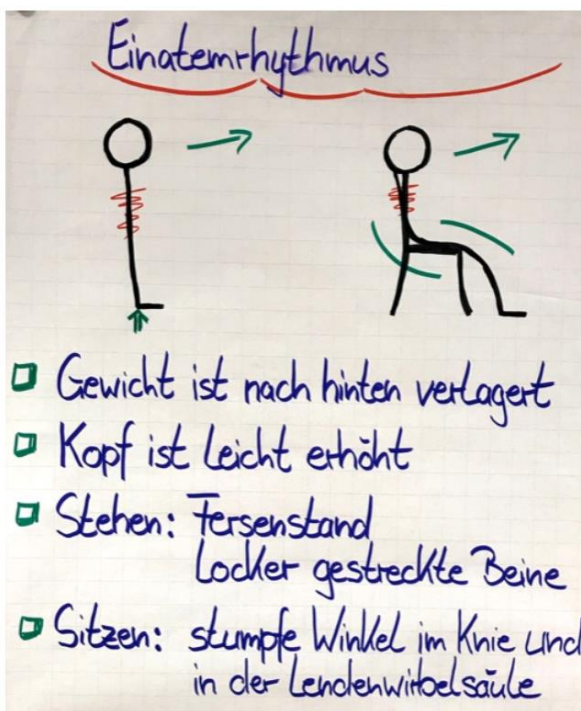 Einatemrhythmus
Gewicht ist nach hinten verlagert
Kopf ist leicht erhöht
Stehen: Fersenstand
locker gestreckte Beine
Sitzen: stumpfe Winkel im Knie und
in der Lendenwirbelsäule